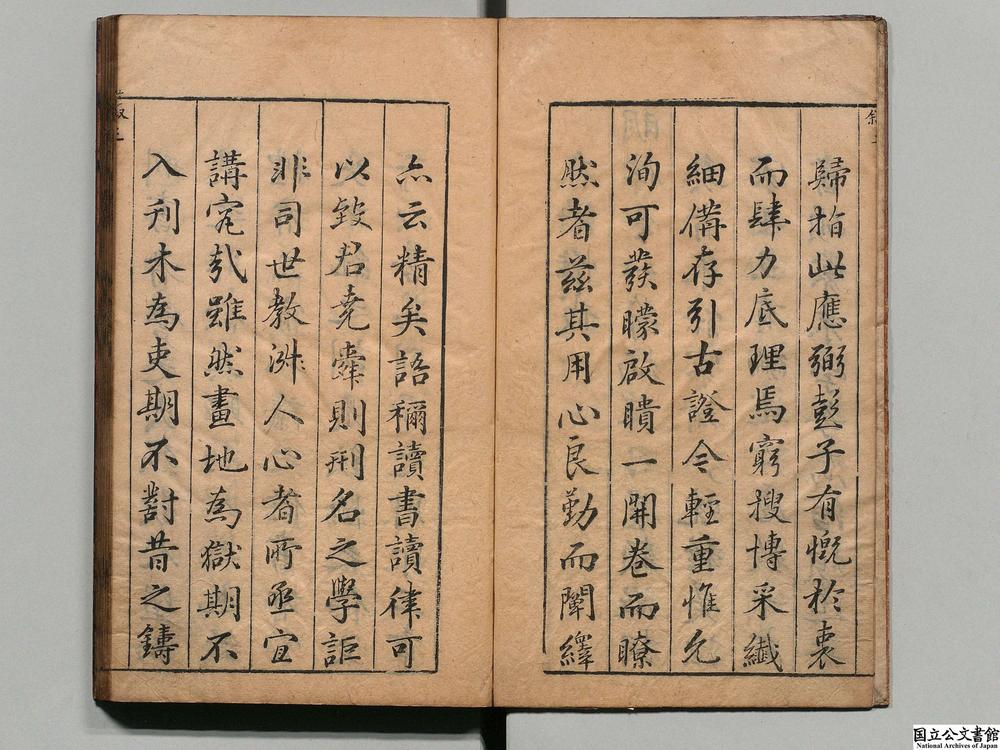 歸指此應弼彭子有慨於衷
而肆力底理焉窮搜博采纖
細備存引古證今輕重惟允
洵可發矇啟聵一開卷而瞭
然者茲其用心良勤而闡繹
亦云精矣語稱讀書讀律可
以致君堯舜則刑名之學詎
非司世教淑人心者所亟宜
講究哉雖然畫地為獄期不
入刊木為吏期不對昔之鑄
国立公文書館
National Archives of Japan